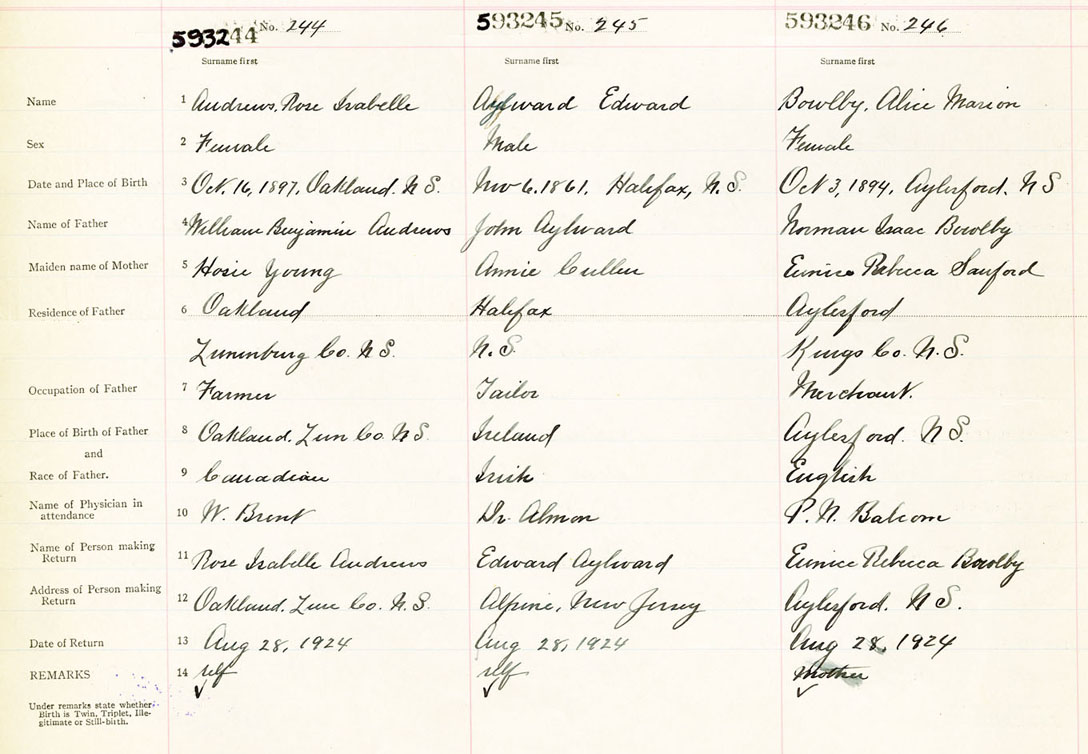 593244 No. 244 593245 No. 245 593246 No. 246
Surname first Surname first Surname first
Name 1 Andrews, Rose Isabelle Aylward Edward Bowlby, Alice Marion
Sex 2 Female Male Female
Date and Place of Birth 3 Oct. 16, 1897, Oakland. N S. Nov 6. 1861, Halifax, N. S. Oct 3, 1894, Aylesford. N S
Name of Father 4 William Benjamin Andrews John Aylward Norman Isaac Bowlby
Maiden name of Mother 5 Hosie Young Annie Cullen Eunice Rebecca Sanford
Residence of Father 6 Oakland Halifax Aylesford
Lunenburg Co. N S. N. S. Kings Co. N. S.
Occupation of Father 7 Farmer Tailor Merchant.
Place of Birth of Father 8 Oakland. Lun Co. N S. Ireland Aylesford. N S.
and
Race of Father. 9 Canadian Irish English
Name of Physician in
attendance 10 W. Brent Dr. Almon P. N. Balcom
Name of Person making
Return 11 Rose Isabelle Andrews Edward Aylward Eunice Rebecca Bowlby
Address of Person making
Return 12 Oakland. Lun Co. N. S. Alpine, New Jersey Aylesford. N S.
Date of Return 13 Aug 28, 1924 Aug 28, 1924 Aug 28, 1924
REMARKS 14 self self mother
Under remarks state whether
Birth is Twin, Triplet, Ille-
gitimate or Still-birth.